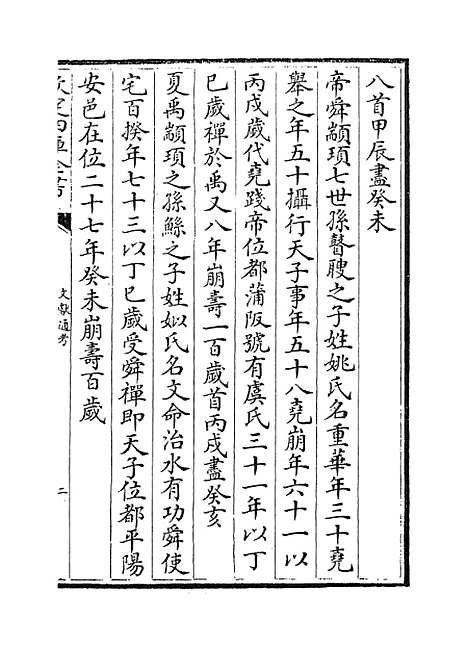 八首甲辰盡癸未
帝舜顓頊七世孫瞽瞍之子姓姚氏名重華年三十堯
舉之年五十攝行天子事年五十八堯崩年六十一以
丙戌歲代堯踐帝位都蒲阪號有虞氏三十一年以丁
巳歲禪於禹又八年崩壽一百歲首丙戌盡癸亥
夏禹顓頊之孫鯀之子姓姒氏名文命治水有功舜使
宅百揆年七十三以丁巳歲受舜禪即天子位都平陽
安邑在位二十七年癸未崩壽百歲
欽定四庫全書
文獻通考
二